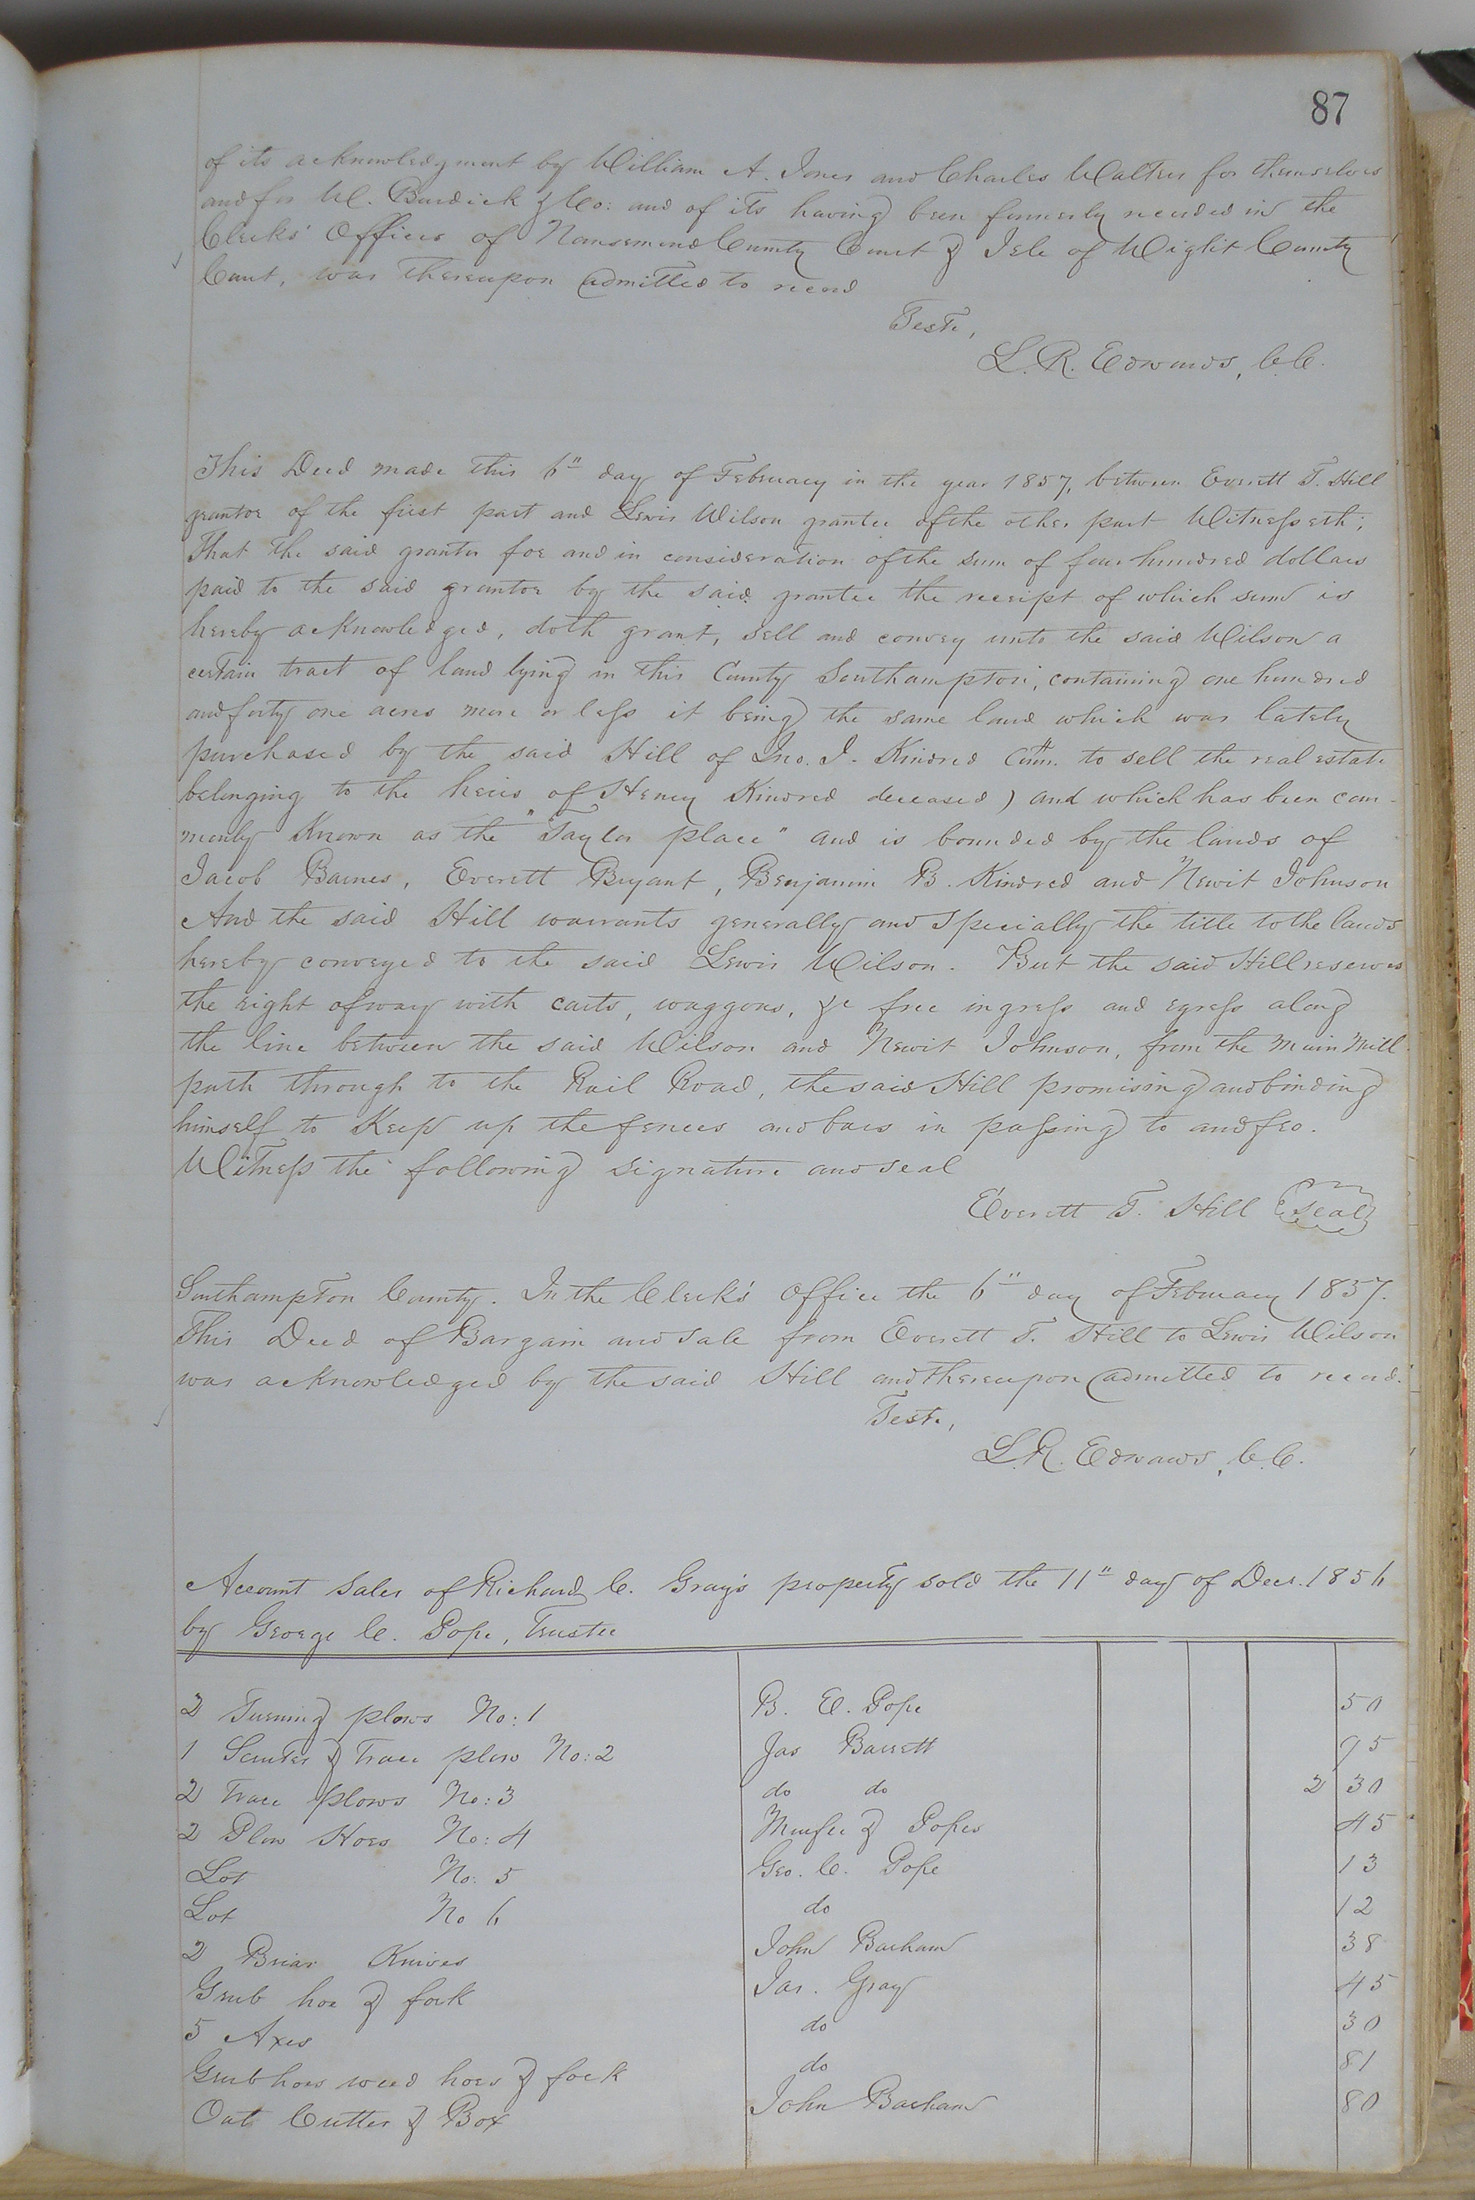 87
of its acknowledgment by William A. Jones and Charles Walters for themselves
and for W. Burdick & Co: and of its having been formerly recorded in the
Clerks' Offices of Nansemond County Court & Isle of Wight County
Court, was thereupon admitted to record
Teste,
L. R. Edwards, C.C.
This Deed made this 6" day of February in the year 1857, between Everett T. Hill
grantor of the first part and Lewis Wilson grantee of the other part Witnesseth;
That the said grantor for and in consideration of the sum of four hundred dollars
paid to the said grantor by the said grantee the receipt of which sum is
hereby acknowledged, doth grant, sell and convey unto the said Wilson a
certain tract of land lying in this County Southampton, containing one hundred
and forty one acres more or less it being the same land which was lately
purchased by the said Hill of Jno. J. Kindred Comr. to sell the real estate
belonging to the heirs of Henry Kindred deceased) and which has been com-
monly Known as the "Taylor place" and is bounded by the lands of
Jacob Barnes, Everett Bryant, Benjamin B. Kindred and Newit Johnson
And the said Hill warrants generally and specially the title to the lands
hereby conveyed to the said Lewis Wilson. But the said Hill reserves
the right of way with carts, waggons, &c free ingress and egress along
the line between the said Wilson and Newit Johnson, from the main Mill
path through to the Rail Road, the said Hill promising and binding
himself to Keep up the fences and bars in passing to and fro.
Witness the following signature and seal
Everett T. Hill (seal)
Southampton County. In the Clerk's office the 6" day of February 1857.
This Deed of Bargain and sale from Everett T. Hill to Lewis Wilson
was acknowledged by the said Hill and thereupon admitted to record.
Teste,
L. R. Edwards, C.C.
Account Sales of Richard C. Gray's property sold the 11" day of Decr. 1856
by George C. Pope, Trustee
2 Turning plows No: 1 B. E. Pope 50
1 Scuter & Trace plow No: 2 Jas Barrett 95
2 Trace plows No: 3 do do 2 30
2 Plow Hoes No: 4 & Popes 45
Lot No. 5 Geo. C. Pope 13
Lot No 6 do 12
2 Briar Knives John Barham 38
Grub hoe & fork Jas. Gray 45
5 Axes do 30
Grub hoes weed hoes & fork do 81
Oat Cutter & Box John Barham 80